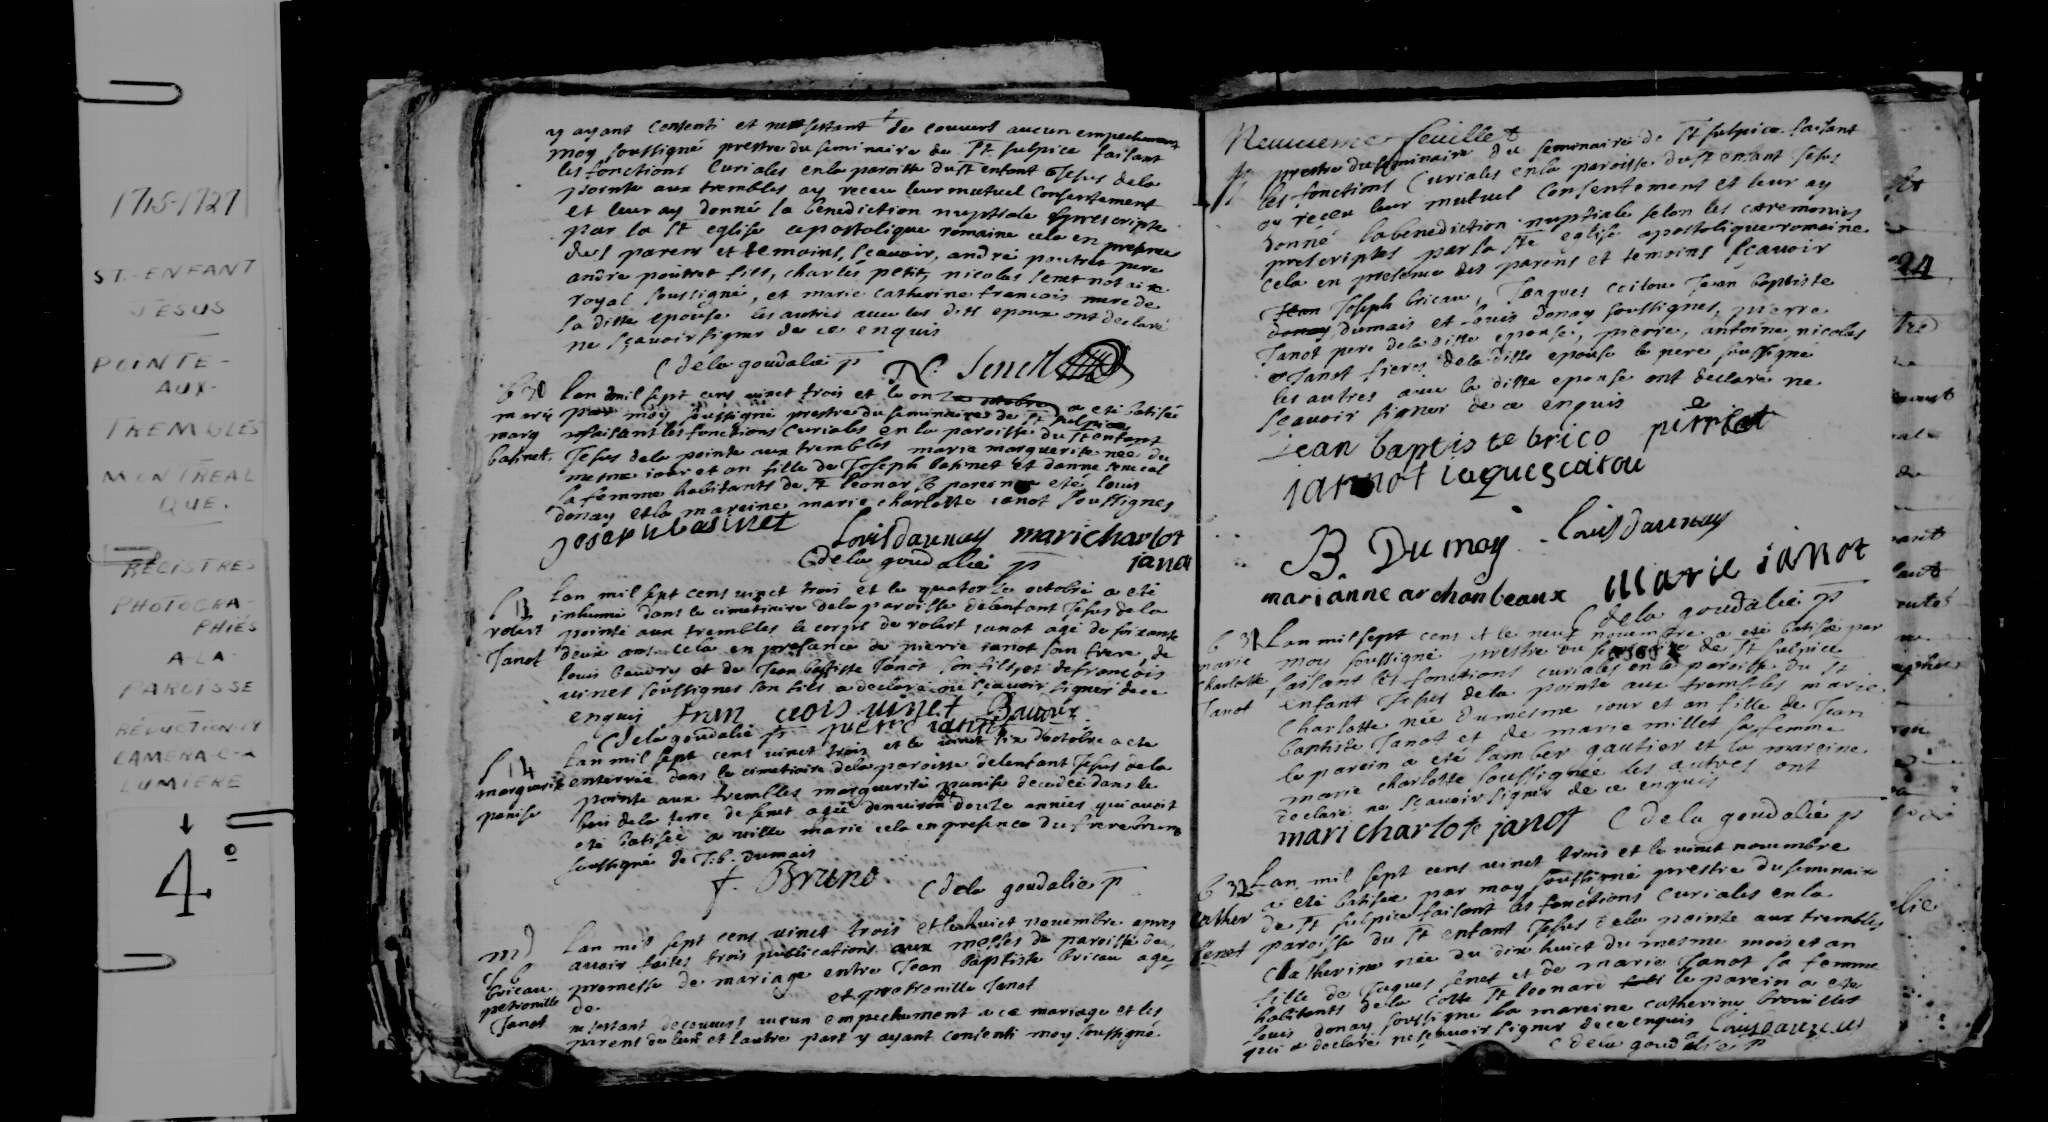 1715-1727
ST. ENFANT
JESUS
POINTE-
AUX-
TREMBLES
MONTREAL
QUE.
REGISTRES
PHOTOGRA-
PHIÉS
A-LA-
PAROISSE
RÉDUCTION-14
CAMERA-C-A
LUMIERE
4º
y ayant consenti et ne sestant decouvert aucun empechement
moy soussigné prestre du seminaire de St sulpice faisant
les fonctions curiales en la paroisse du St enfant Jesus de la
pointe aux trembles ay receu leur mutuel consentement
et leur ay donné la benediction nuptiale prescripte
par la Ste eglise apostolique romaine cela en presence
des parens et temoins, sçavoir, andré poutret pere
andré poutret fils, charles petit, nicolas senet notaire
royal soussigné, et marie catherine francois mere de
la ditte epouse les autres avec les dits epoux ont declaré
ne sçavoir signer de ce enquis
C de la goudalie p N. Senet
b 30
marie
marg
batinet
Lan mil sept cens vinct trois et le onze octobre a eté batisée
par moy soussigné prestre du seminaire de St sulpice
faisant les fonctions curiales en la paroisse du St enfant
Jesus de la pointe aux trembles marie marguerite née du
mesme iour et an fille de Joseph batinet et danne senecal
sa femme habitants de St leonar le parein a eté louis
donay et la mareine marie charlotte ianot soussignes
Joseph basinet louisdaunay maricharlot
C de la goudalie p ianot
S 13
robert
Janot
Lan mil sept cens vinct trois et le quatorze octobre a eté
inhumé dans le cimetiere de la paroisse de lenfant Jesus de la
pointe aux trembles le corps de robert ianot agé de soixante
deux ans cela en presance de pierre ianot son frere, de
louis baudry et de Jean baptiste Janot son fils, et de francois
vinet soussignes son fils a declaré ne sçavoir signer de ce
enquis fran cois vinet Baudry
C de la goudalie p pierre ianot
S 14
marguerite
panise
Lan mil sept cens vinct trois et le vinct six doctobre a eté
enterrée dans le cimetiere de la paroisse de lenfant Jesus de la
pointe aux trembles marguerite panise decedée dans le
bois de la terre de senet agée denviron douze années qui avoit
eté batisée a ville marie cela en presence du frere bruno
soussigné de J.b. Dumais
f. Bruno C de la goudalie p
m 9
J b
bricau
petronille
Janot
Lan mil sept cens vinct trois et le huict novembre apres
avoir faites trois publications aux messes de paroisse de
promesse de mariage entre Jean baptiste bricau agé
de et petronille Janot
ne sestant decouvert aucun empechement a ce mariage et les
parens de lun et lautre part y ayant consenti moy soussigné
Neuvieme feuillet
prestre du seminaire de St sulpice faisant
les fonctions curiales en la paroisse du St enfant Jesus
ay receu leur mutuel consentement et leur ay
donné la benediction nuptiale selon les ceremonies
prescriptes par la Ste eglise apostolique romaine
cela en presence des parens et temoins sçavoir
Jean Joseph bricau, Jaques catou Jean baptiste
donay dumais et louis donay soussignes, pierre
Janot pere de la ditte epouse, pierre, antoine, nicolas
Janot freres de la ditte epouse le pere soussigné
les autres avec la ditte epouse ont declaré ne
sçavoir signer de ce enquis
jean baptis te brico pierre
iannot iaques catou
B. Dumay louisdaunay
marianne archanbeaux Marie ianot
C de la goudalie p
b 31
marie
charlotte
Janot
Lan mil sept cens et le neuf novembre a eté batisée par
moy soussigné prestre du seminaire de St sulpice
faisant les fonctions curiales en la paroisse du St
enfant Jesus de la pointe aux trembles marie
charlotte née du mesme iour et an fille de Jean
baptiste Janot et de marie millet sa femme
le parein a eté lamber gautier et la mareine
marie charlotte soussignée les autres ont
declaré ne sçavoir signer de ce enquis
mari charlote janot C de la goudalie p
b 32
Cather
senet
Lan mil sept cens vinct trois et le vinct novembre
a eté batisée par moy soussigné prestre du seminaire
de St sulpice faisant les fonctions curiales en la
paroisse du St enfant Jesus de la pointe aux trembles
Catherine née du dix huict du mesme mois et an
fille de Jaques senet et de marie Janot sa femme
habitants de la coste St leonard le parein a eté
louis donay soussigné la mareine catherine brouillet
qui a declaré ne sçavoir signer de ce enquis louisdaunay
C de la goudalie p
24